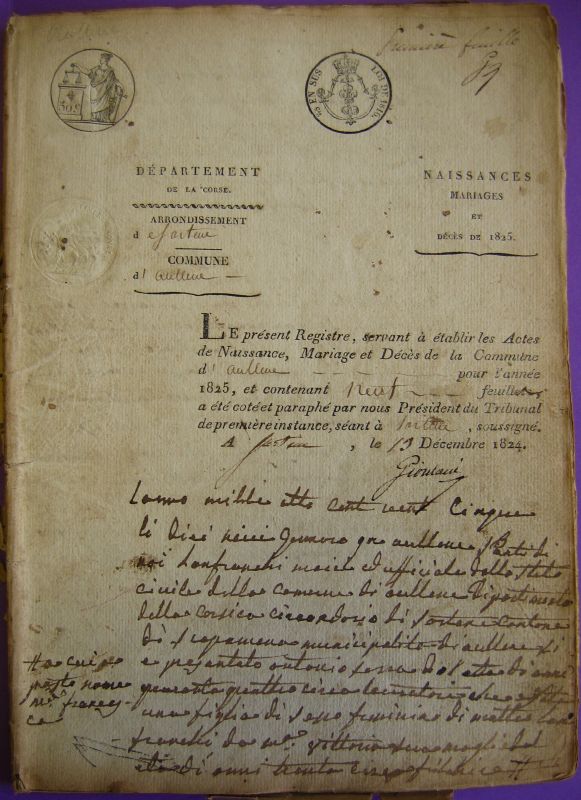 Première feuille
50 C
EN SUS
LOI DE 1816.
DÉPARTEMENT
DE LA CORSE.
ARRONDISSEMENT
d e Sartene
COMMUNE
d' aullene
NAISSANCES
MARIAGES
ET
DÉCÈS DE 1825.
LE présent Registre, servant à établir les Actes
de Naissance, Mariage et Décès de la Commune
d' aullene pour l'année
1825, et contenant neuf feuillets
a été coté et paraphé par nous Président du Tribunal
de première instance, séant à Sartene, soussigné.
A Sartene, le 13 Décembre 1824.
Giordani
L'anno mille otto cent vent Cinque
li dieci Gennaro avanti di
noi Lanfranchi maire ed uffiziale dello stato
civile della comune di aullene dipartimento
della corsica circondario di Sartene Cantone
di Scopamena municipalità di aullene si
e presentato antonio di anni
quaranta quattro circa
una figlia di sesso feminino di matteo Lan
franchi da M.a Vittoria sua moglie
di anni trenta circa
a cui e
posto nome
M.a frances
ca